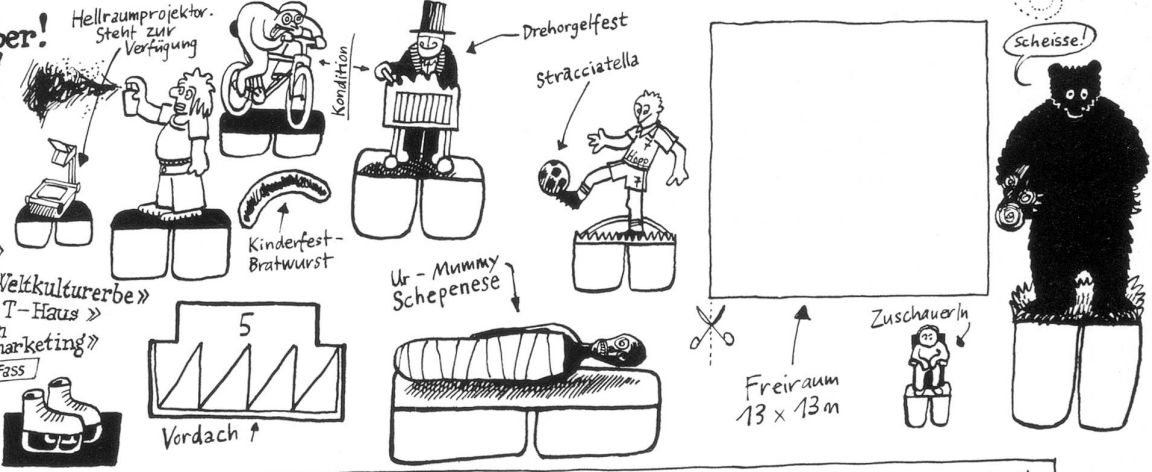 per!
Hellraumprojektor.
Steht zur
Verfügung
Kondition
Drehorgelfest
Stracciatella
Hopp
7
7
Scheisse!
Kinderfest-
Bratwurst
Weltkulturerbe»
T-Haus »
marketing»
Fass
5
Vordach
Ur-Mummy
Schepenese
Freiraum
13 x 13 m
ZuschauerIn